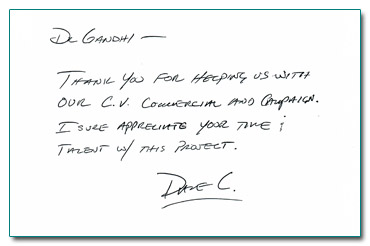 Dr Gandhi —
Thank you for helping us with
our C.V. Commercial and Campaign.
I sure appreciate your time &
Talent w/ this project.
Dave C.